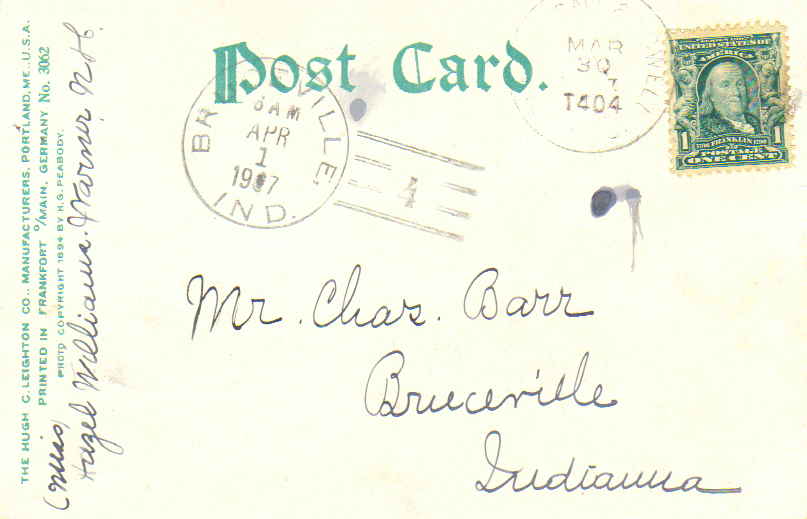 Post Card.
BRUCEVILLE
8 AM
APR
1
1907
IND.
4
MAR
30
7
T404
UNITED STATES OF
AMERICA
1706 FRANKLIN 1790
1 POSTAGE 1
ONE CENT
Mr. Chas. Barr
Bruceville
Indianna
THE HUGH C. LEIGHTON CO., MANUFACTURERS, PORTLAND, ME., U.S.A.
PRINTED IN FRANKFORT O/MAIN, GERMANY No. 3062
PHOTO COPYRIGHT 1894 BY H.G. PEABODY.
(Miss)
Hazel Williams. Warner, N.H.